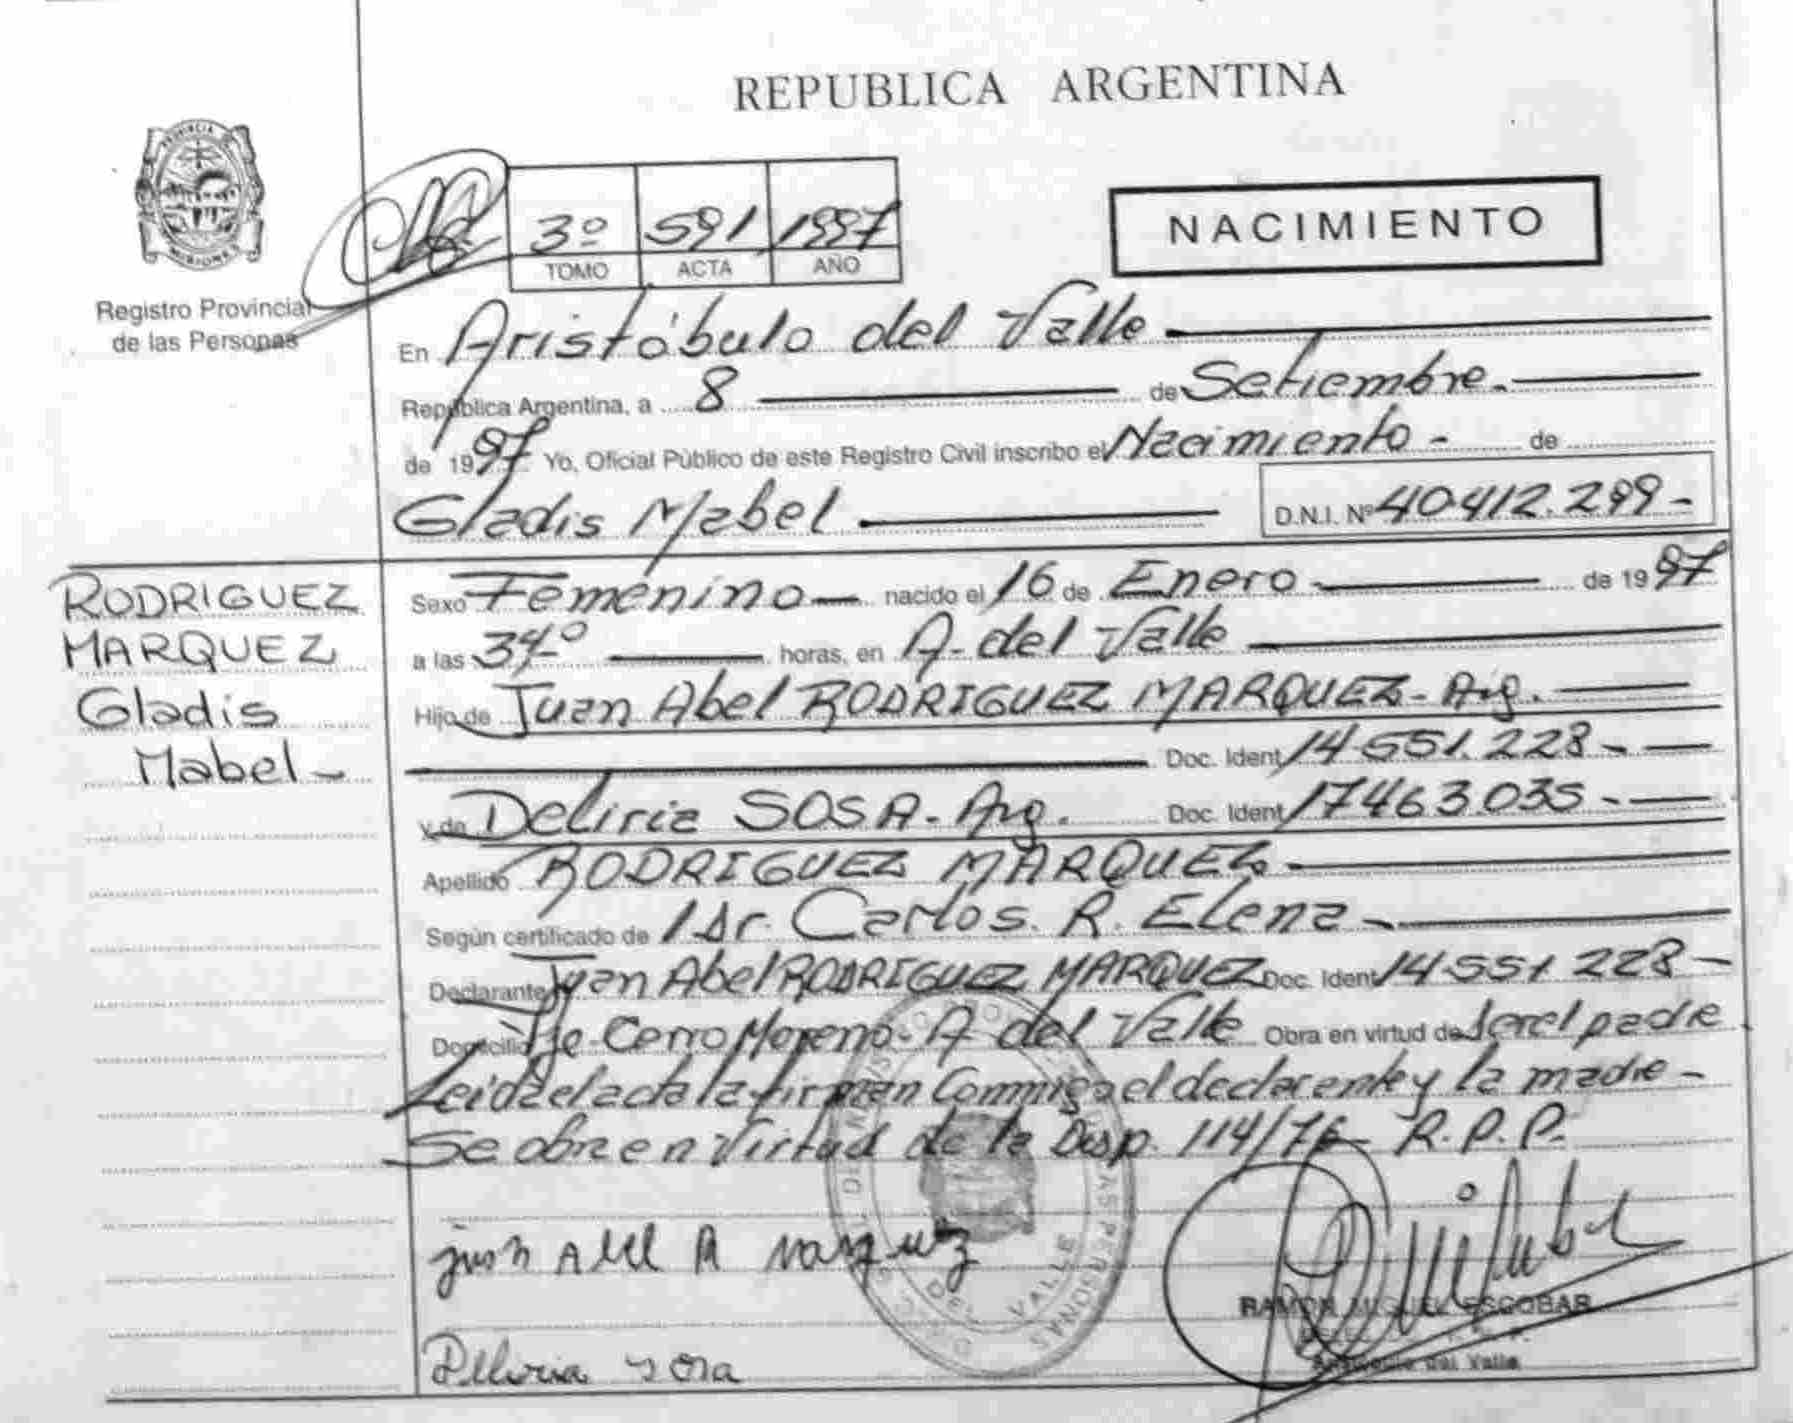 REPUBLICA ARGENTINA
PROVINCIA
MISIONES
Registro Provincial
de las Personas
3º 591 1997
TOMO ACTA AÑO
NACIMIENTO
En Aristóbulo del Valle
República Argentina, a 8 de Setiembre.
de 1997 Yo, Oficial Público de este Registro Civil inscribo el Nacimiento - de
Gladis Mabel D.N.I. Nº 40412.299-
RODRIGUEZ
MARQUEZ
Gladis
Mabel-
Sexo Femenino nacido el 16 de Enero de 1997
a las horas, en A. del Valle
Hijo de Juan Abel RODRIGUEZ MARQUEZ - Arg.
Doc. Ident 14.551.228 -
y de Deliria SOSA - Arg. Doc. Ident 17463.035 -
Apellido RODRIGUEZ MARQUEZ
Según certificado de Dr. Carlos. R. Elena
Declarante Juan Abel RODRIGUEZ MARQUEZ Doc. Ident 14.551.228 -
Domicilio Cerro Moreno - A del Valle Obra en virtud de ser el padre
Leida el acta la firman Conmigo el declarante y la madre -
Se obra en Virtud de la Disp. 114/76 R.P.P.
DEL VALLE
RAMON MIGUEL ESCOBAR
Aristobulo del Valle
Deliria sosa